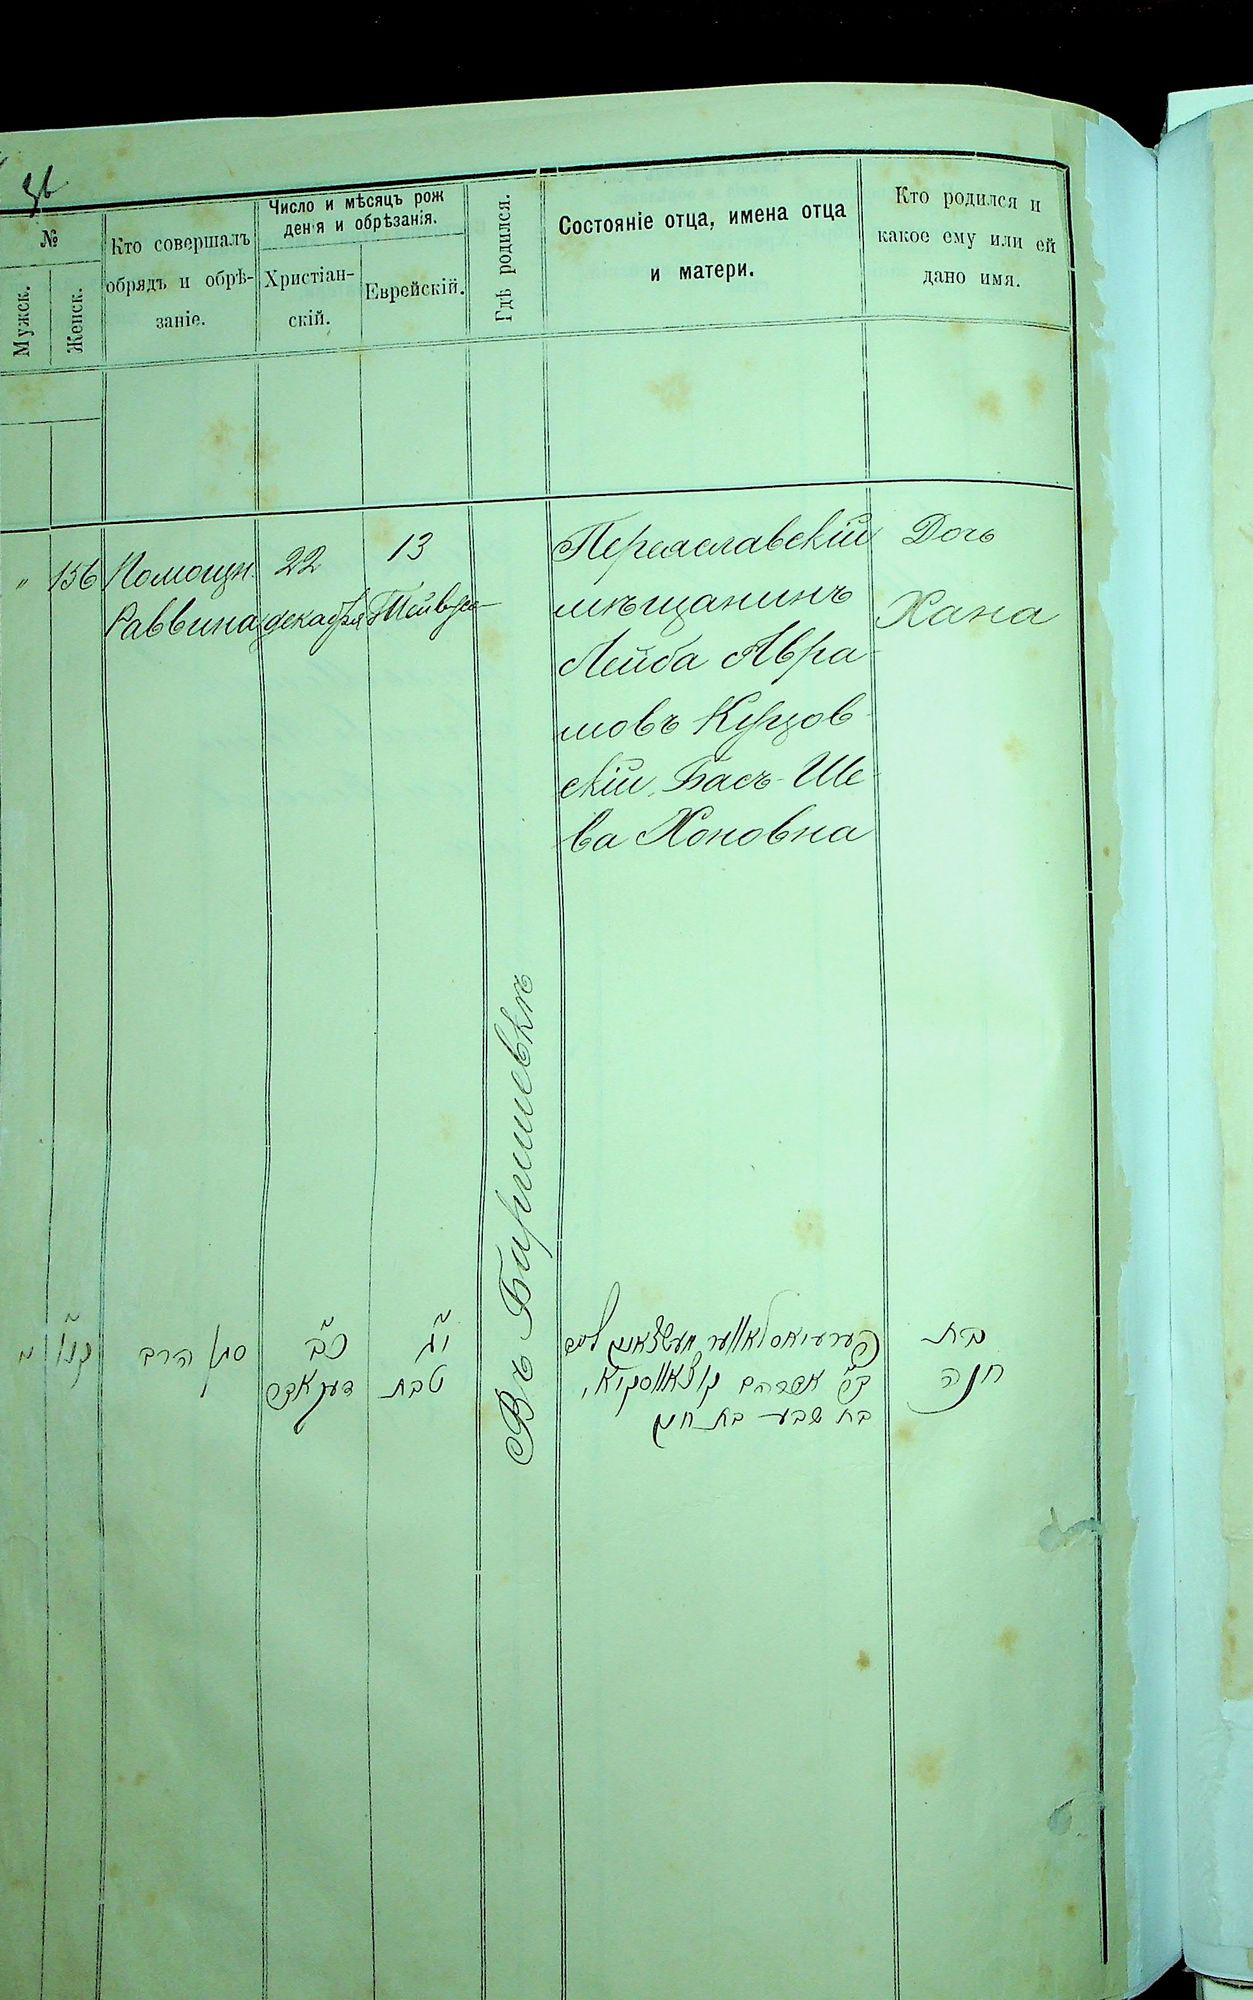 №
Мужск.
Женск.
Кто совершалъ
обрядъ и обрѣ-
заніе.
Число и мѣсяцъ рож
денія и обрѣзанія.
Христіан-
скій.
Еврейскій.
Гдѣ родился.
Состояніе отца, имена отца
и матери.
Кто родился и
какое ему или ей
дано имя.
" 156
Помощн.
Раввина
22
декабря
13
Тейвеса
Въ Баришевкѣ
Переяславскій
мѣщанинъ
Лейба Авра-
мовъ Куцов-
скій, Бась-Ше-
ва Хоновна
Дочь
Хана
קנ״ו
סגן הרב
כ״ב
דעקאבר
י״ג
טבת
פערעיאסלאווער מעשצאנין ליב
ב״ר אברהם קוצאווסקיא,
בת שבע בת חנן
בת
חנה